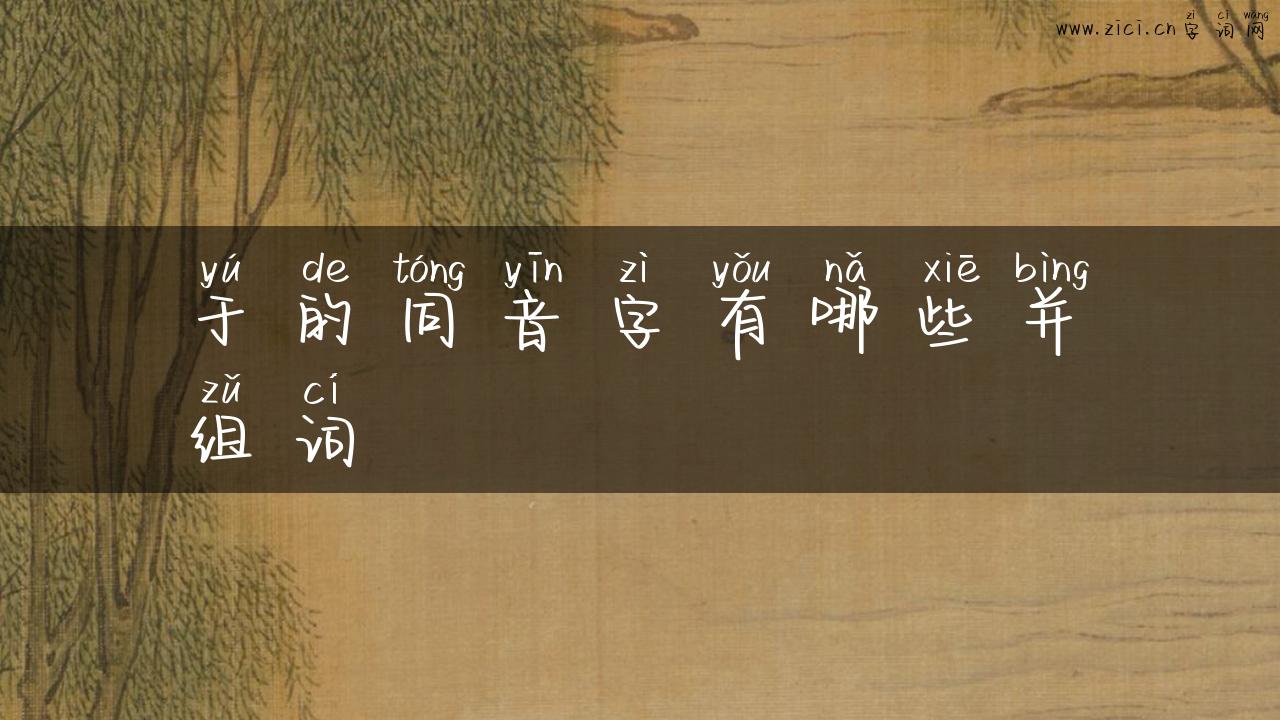 zì cí wǎng
www.zici.cn 字词网
yú de tóng yīn zì yǒu nǎ xiē bìng
于的同音字有哪些并
zǔ cí
组词